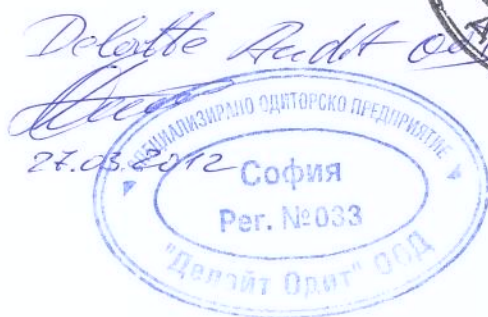 Deloitte Audit
27.03.2012
СПЕЦИАЛИЗИРАНО ОДИТОРСКО ПРЕДПРИЯТИЕ
София
Рег. №033
"Делойт Одит" ООД